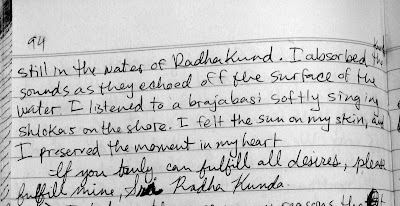 94
still in the water of Radha Kund. I absorbed the
sounds as they echoed off the surface of the
water. I listened to a brajabasi softly singing
shlokas on the shore. I felt the sun on my skin, and
I preserved the moment in my heart.
If you truly can fulfill all desires, please
fulfill mine, Radha Kunda.